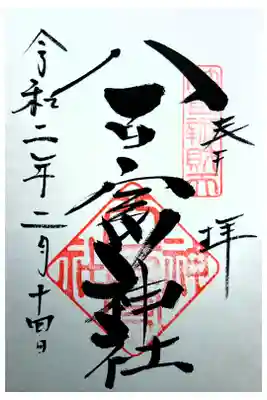 奉拝
八百富神社
令和二年二月十四日